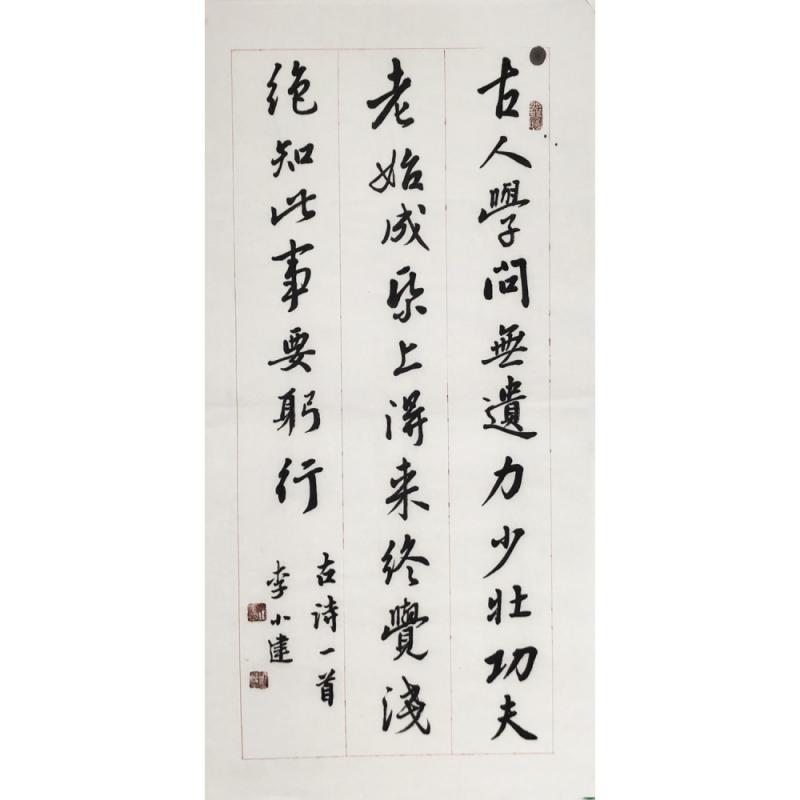 古人學問無遺力少壯功夫
老始成帋上得来終覺淺
絶知此事要躬行
古詩一首
李小建